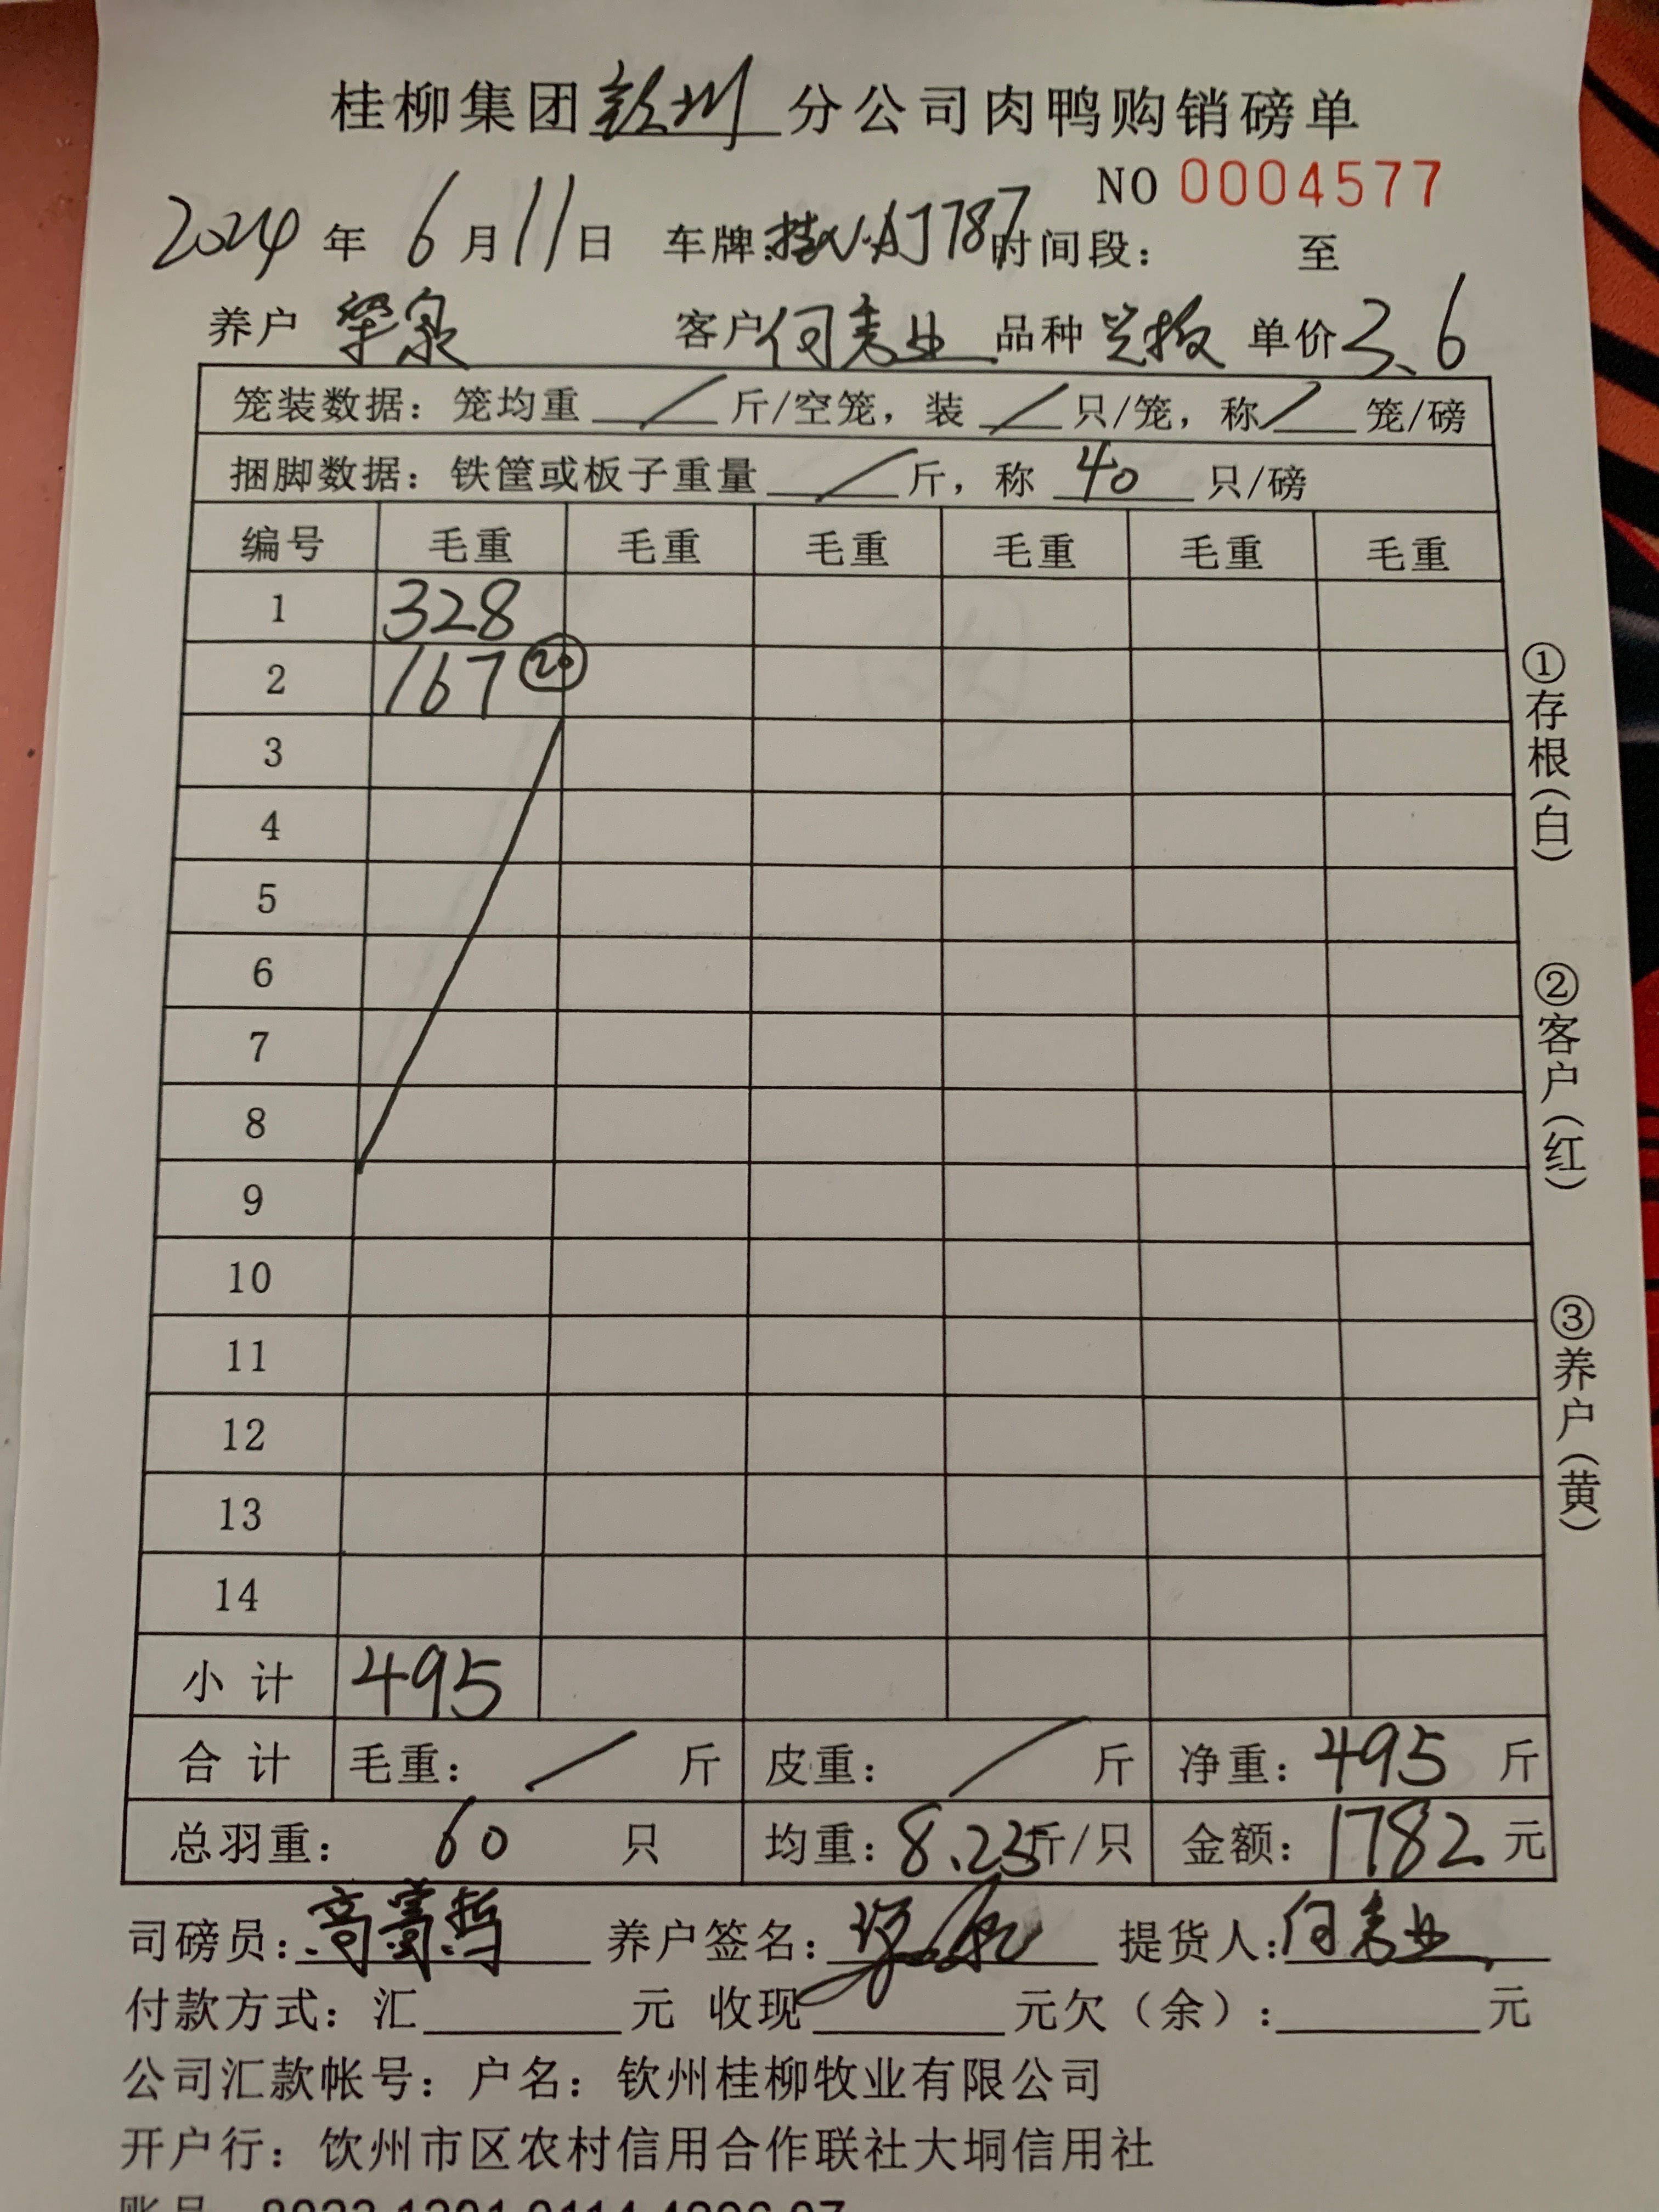 桂柳集团钦州分公司肉鸭购销磅单
NO 0004577
2024年 6月11日 车牌:桂N·AJ787 时间段: 至
养户 客户何秀业 品种 单价3.6
笼装数据:笼均重 / 斤/空笼,装 / 只/笼,称 / 笼/磅
捆脚数据:铁筐或板子重量 / 斤,称 40 只/磅
编号 毛重 毛重 毛重 毛重 毛重 毛重
1 328
2 167 ⑳
3
4
5
6
7
8
9
10
11
12
13
14
小 计 495
合 计 毛重: / 斤 皮重: / 斤 净重:495 斤
总羽重: 60 只 均重:8.25斤/只 金额:1782元
司磅员: 养户签名: 提货人:何秀业
付款方式:汇 元 收现 元欠(余): 元
公司汇款帐号:户名:钦州桂柳牧业有限公司
开户行:饮州市区农村信用合作联社大垌信用社
①存根(白)
②客户(红)
③养户(黄)